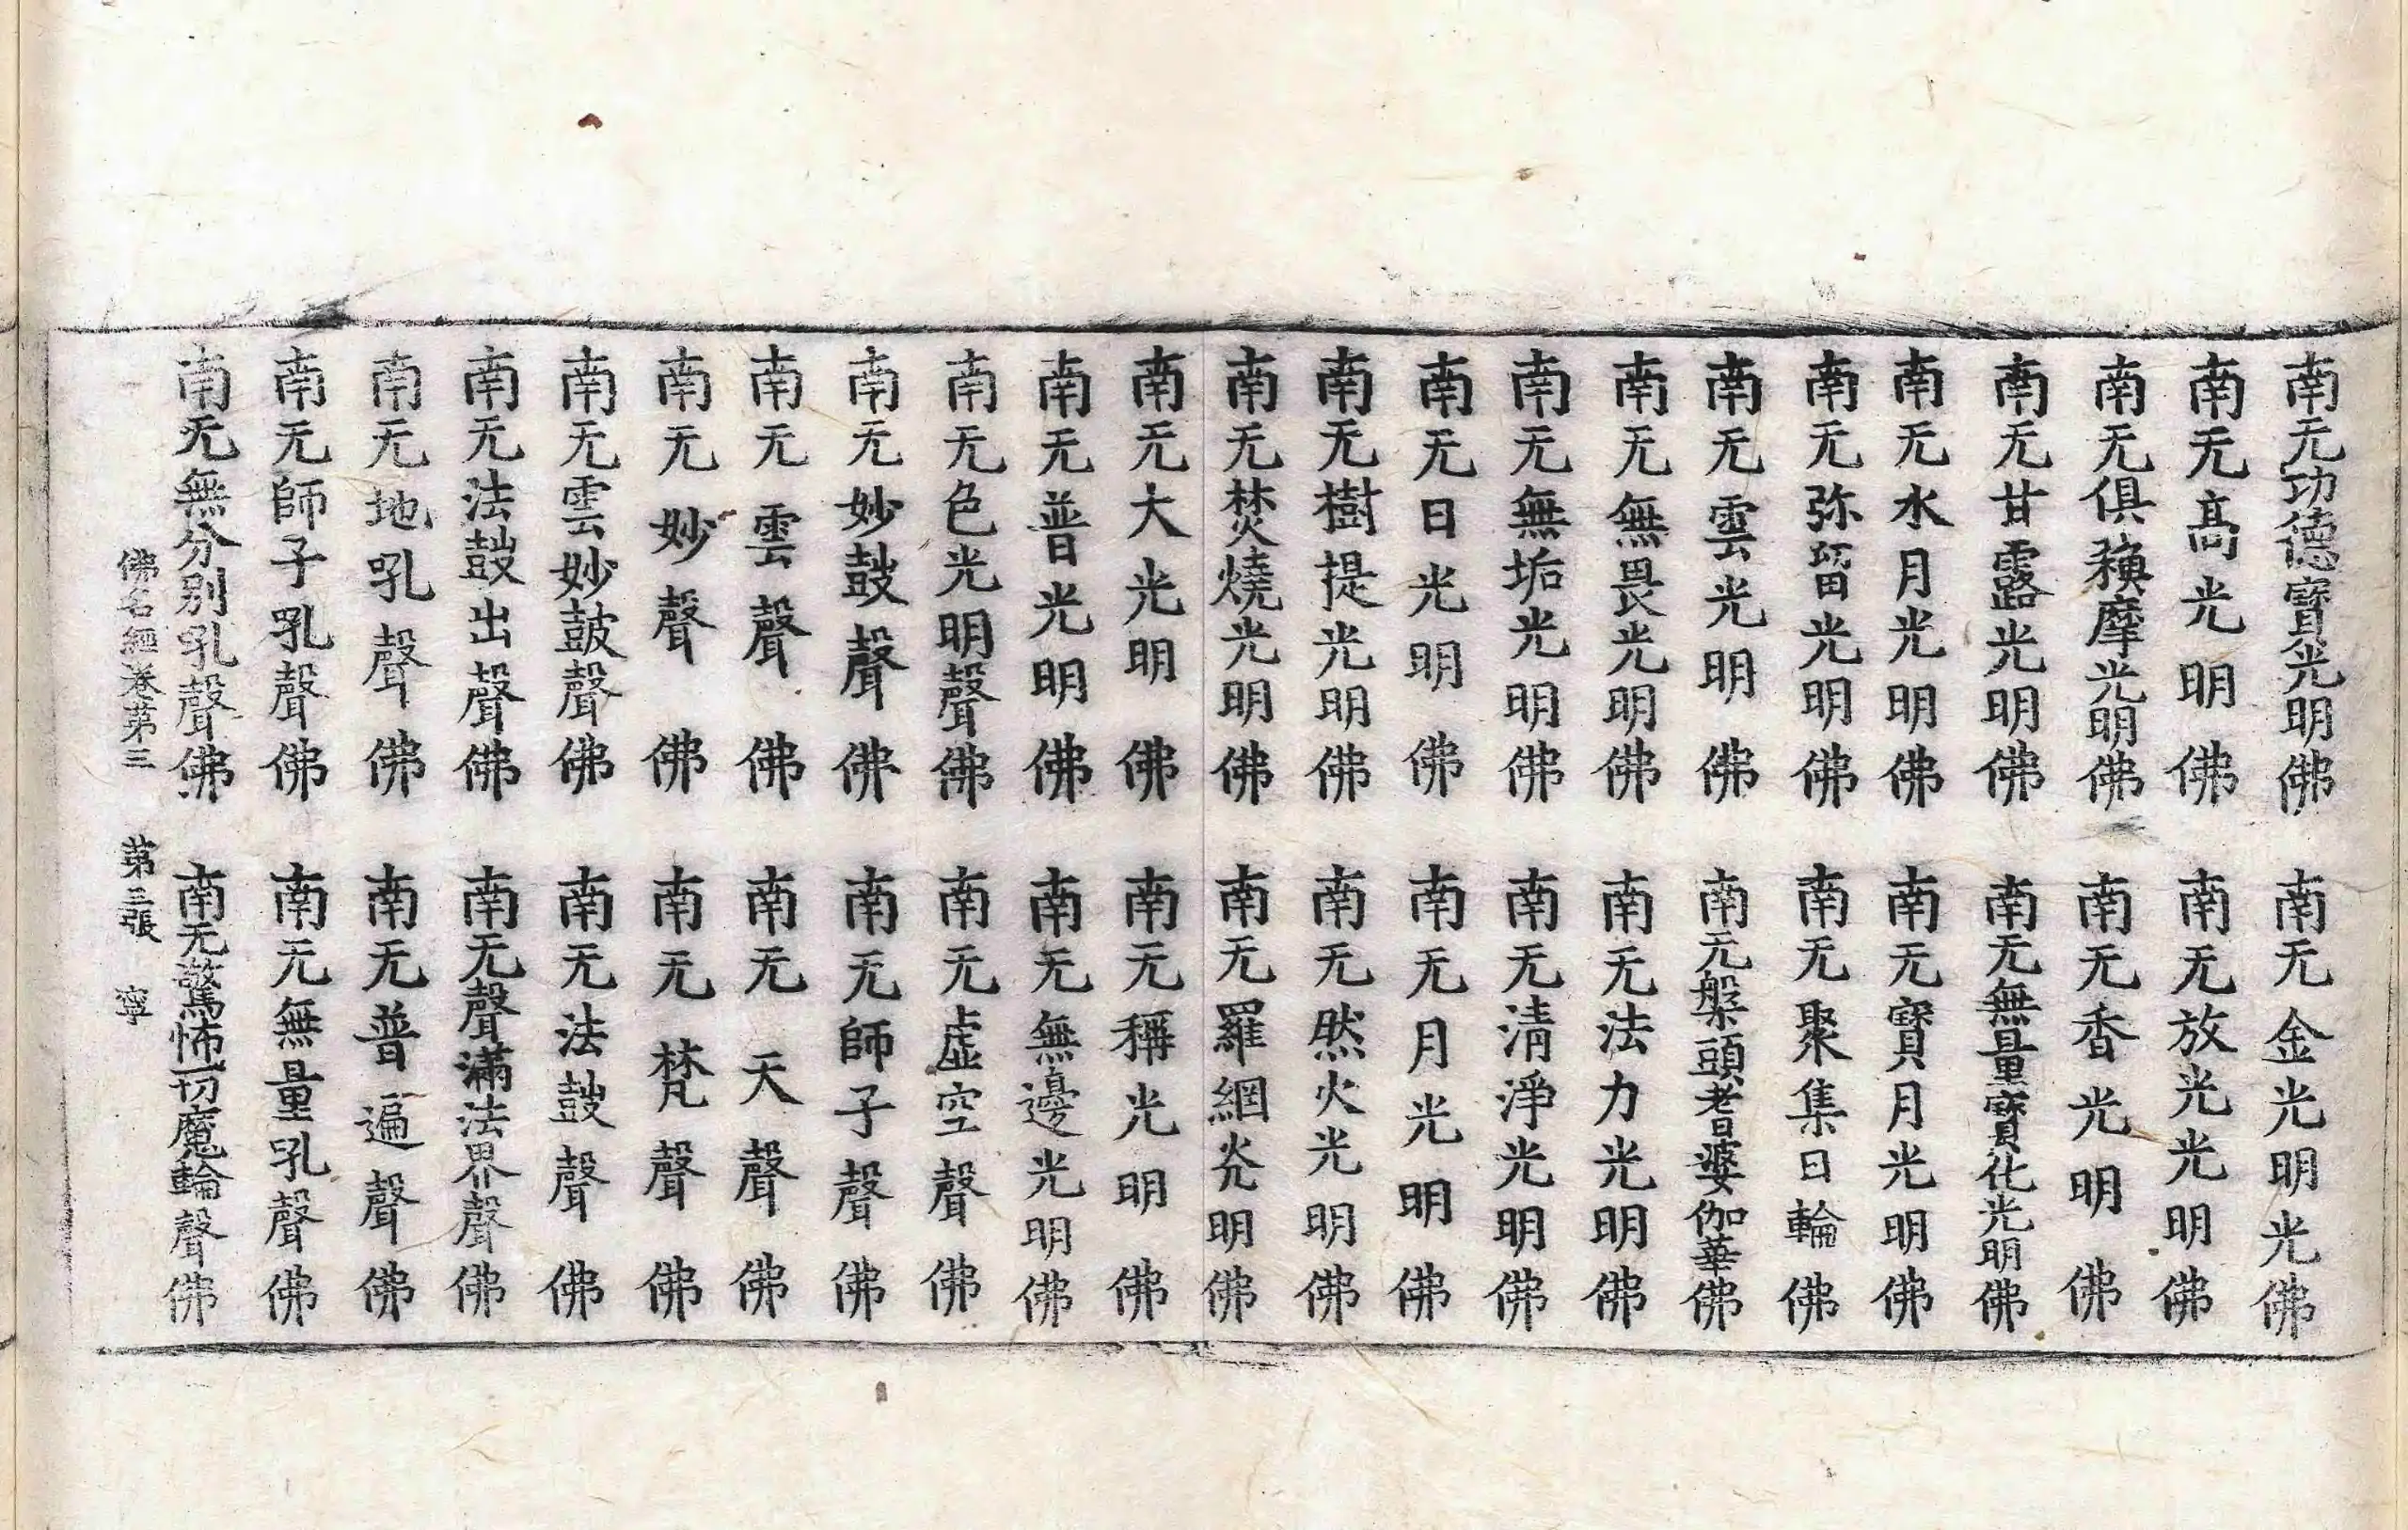 南无功德寶光明佛 南无金光明光佛
南无高光明佛 南无放光光明佛
南无俱䅘摩光明佛 南无香光明佛
南无甘露光明佛 南无無量寶化光明佛
南无水月光明佛 南无寶月光明佛
南无弥留光明佛 南无聚集日輪佛
南无雲光明佛 南无槃頭耆婆伽華佛
南无無畏光明佛 南无法力光明佛
南无無垢光明佛 南无清淨光明佛
南无日光明佛 南无月光明佛
南无樹提光明佛 南无然火光明佛
南无焚燒光明佛 南无羅網炎明佛
南无大光明佛 南无稱光明佛
南无普光明佛 南无無邊光明佛
南无色光明聲佛 南无虛空聲佛
南无妙鼓聲佛 南无師子聲佛
南无雲聲佛 南无天聲佛
南无妙聲佛 南无梵聲佛
南无雲妙鼓聲佛 南无法鼓聲佛
南无法鼓出聲佛 南无聲滿法界聲佛
南无地吼聲佛 南无普遍聲佛
南无師子吼聲佛 南无無量吼聲佛
南无無分别吼聲佛 南无驚怖一切魔輪聲佛
佛名經卷第三 第三張 寧